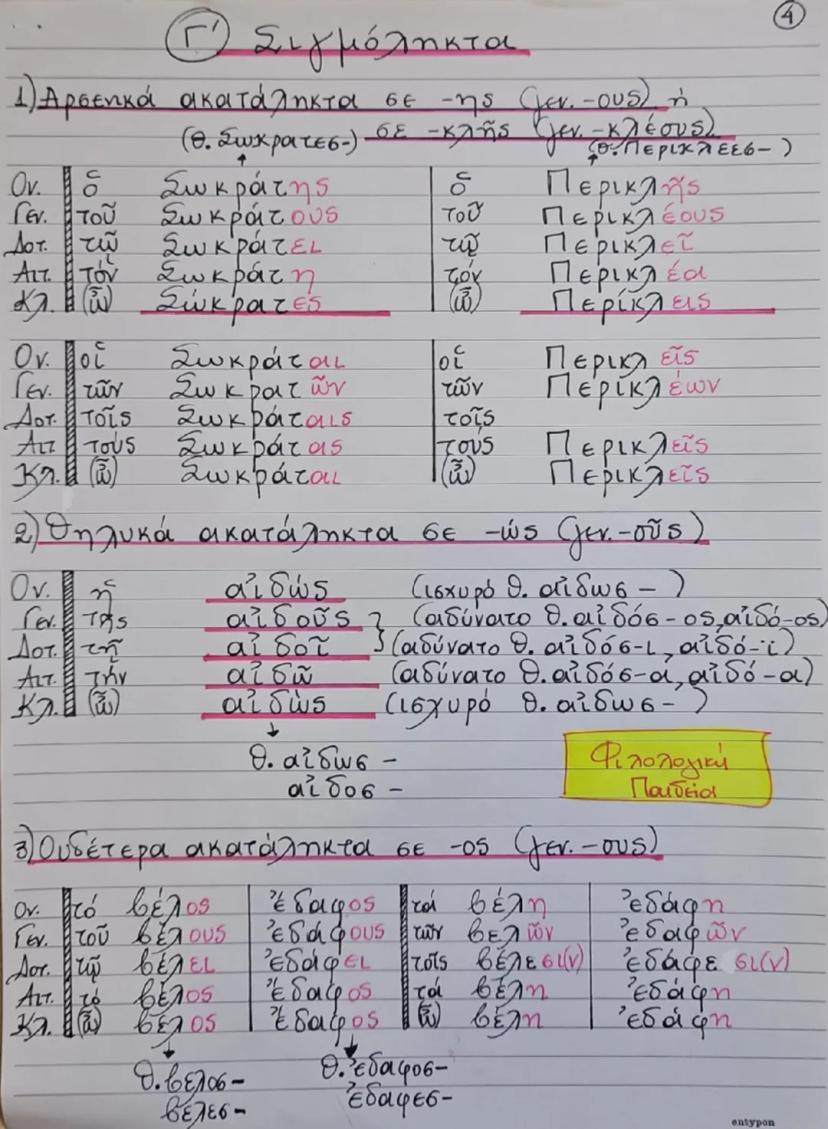 4
Γ΄ Σιγμόληκτα
1) Αρσενικά ακατάληκτα σε -ης (γεν. -ους) ή
(θ. Σωκρατεσ-) σε -κλῆς (γεν. -κλέους)
(θ. Περικλεεσ-)
Ον. ὁ Σωκράτης ὁ Περικλῆς
Γεν. τοῦ Σωκράτους τοῦ Περικλέους
Δοτ. τῷ Σωκράτει τῷ Περικλεῖ
Αιτ. τόν Σωκράτη τόν Περικλέα
Κλ. (ὦ) Σώκρατες (ὦ) Περίκλεις
Ον. οἱ Σωκράται οἱ Περικλεῖς
Γεν. τῶν Σωκρατῶν τῶν Περικλέων
Δοτ. τοῖς Σωκράταις τοῖς
Αιτ. τούς Σωκράτας τούς Περικλεῖς
Κλ. (ὦ) Σωκράται (ὦ) Περικλεῖς
2) Θηλυκά ακατάληκτα σε -ώς (γεν. -οῦς)
Ον. ἡ αἰδώς (ισχυρό θ. αἰδωσ- )
Γεν. τῆς αἰδοῦς } (αδύνατο θ. αἰδόσ-ος, αἰδό-ος)
Δοτ. τῇ αἰδοῖ } (αδύνατο θ. αἰδόσ-ι, αἰδό-ϊ)
Αιτ. τήν αἰδῶ (αδύνατο θ. αἰδόσ-α, αἰδό-α)
Κλ. (ὦ) αἰδὼς (ισχυρό θ. αἰδωσ- )
θ. αἰδωσ-
αἰδοσ-
Φιλολογική
Παιδεία
3) Ουδέτερα ακατάληκτα σε -ος (γεν. -ους)
Ον. τό βέλος ἔδαφος τά βέλη ἐδάφη
Γεν. τοῦ βέλους ἐδάφους τῶν βελῶν ἐδαφῶν
Δοτ. τῷ βέλει ἐδάφει τοῖς βέλεσι(ν) ἐδάφεσι(ν)
Αιτ. τό βέλος ἔδαφος τά βέλη ἐδάφη
Κλ. (ὦ) βέλος ἔδαφος (ὦ) βέλη ἐδάφη
θ. βελοσ- θ. ἐδαφοσ-
βελεσ- ἐδαφεσ-
entypon